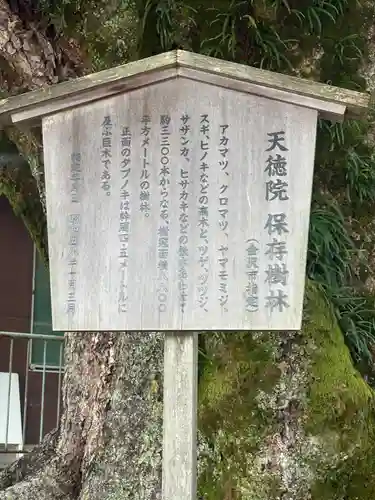 天徳院 保存樹林
(金沢市指定)
アカマツ、クロマツ、ヤマモミジ、
スギ、ヒノキなどの高木と、ツゲ、ツツジ、
サザンカ、ヒサカキなどの低木合せて
約三三〇〇本からなる、樹冠面積八、八〇〇
平方メートルの樹林。
正面のタブノキは幹周四・五メートルに
及ぶ巨木である。